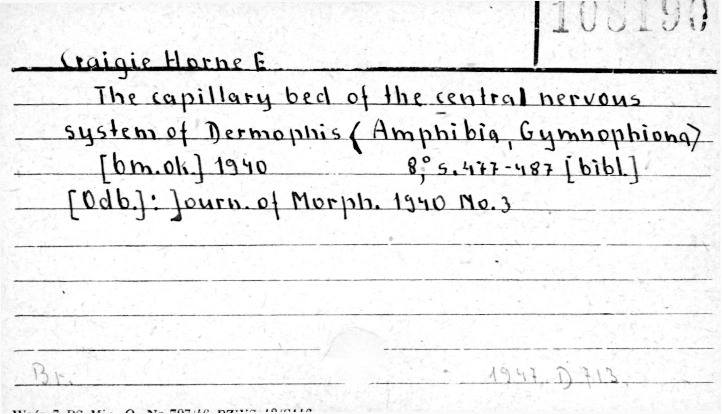 108190
Craigie Horne E
The capillary bed of the central nervous
system of Dermophis (Amphibia, Gymnophiona)
[bm.ok.] 1940 8,° s. 477-487 [bibl.]
[Odb.]: Journ. of Morph. 1940 No. 3
Br. 1947. D 713.